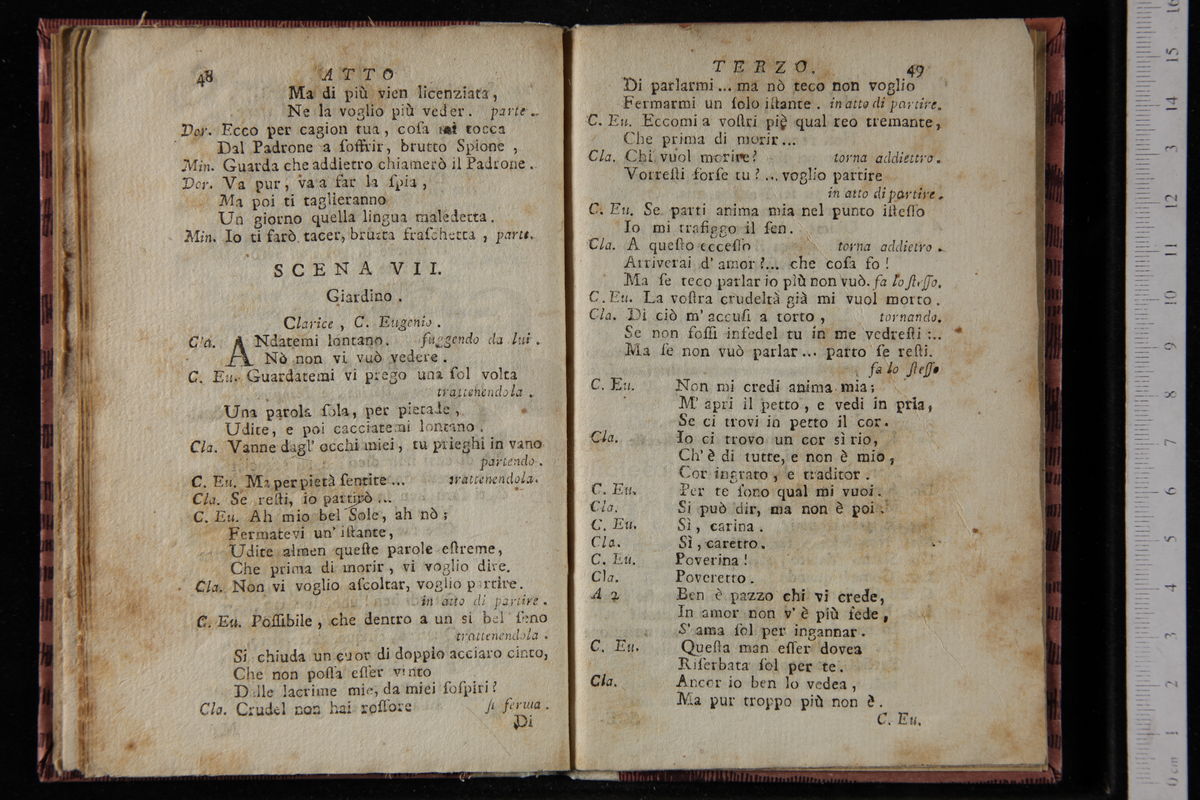 48 ATTO
Ma di più vien licenziata,
Ne la voglio più veder. parte.
Dor. Ecco per cagion tua, coſa mi tocca
Dal Padrone a ſoffrir, brutto Spione,
Min. Guarda che addietro chiamerò il Padrone.
Dor. Va pur, va a far la ſpia,
Ma poi ti taglieranno
Un giorno quella lingua maledetta.
Min. Io ti farò tacer, brutta fraſchetta, parte.
SCENA VII.
Giardino.
Clarice, C. Eugenio.
Cla. ANdatemi lontano. fuggendo da lui.
Nò non vi vuò vedere.
C. Eu. Guardatemi vi prego una ſol volta
trattenendola.
Una parola ſola, per pietade,
Udite, e poi cacciatemi lontano.
Cla. Vanne dagl' occhi miei, tu prieghi in vano
partendo.
C. Eu. Ma per pietà ſentite... trattenendola.
Cla. Se reſti, io partirò...
C. Eu. Ah mio bel Sole, ah nò;
Fermatevi un' iſtante,
Udite almen queſte parole eſtreme,
Che prima di morir, vi voglio dire.
Cla. Non vi voglio aſcoltar, voglio partire.
in atto di partire.
C. Eu. Poſſibile, che dentro a un sì bel ſeno
trattenendola.
Si chiuda un cuor di doppio acciaro cinto,
Che non poſſa eſſer vinto
Dalle lacrime mie, da miei ſoſpiri?
Cla. Crudel non hai roſſore ſi ferma.
Di
TERZO. 49
Di parlarmi... ma nò teco non voglio
Fermarmi un ſolo iſtante. in atto di partire.
C. Eu. Eccomi a voſtri piè qual reo tremante,
Che prima di morir...
Cla. Chi vuol morire? torna addiettro.
Vorreſti forſe tu?... voglio partire
in atto di partire.
C. Eu. Se parti anima mia nel punto iſteſſo
Io mi trafiggo il ſen.
Cla. A queſto ecceſſo torna addietro.
Arriverai d' amor?... che coſa fo!
Ma ſe teco parlar io più non vuò. fa lo ſteſſo.
C. Eu. La voſtra crudeltà già mi vuol morto.
Cla. Di ciò m' accuſi a torto, tornando.
Se non foſſi infedel tu in me vedreſti...
Ma ſe non vuò parlar... parto ſe reſti.
fa lo ſteſſo
C. Eu. Non mi credi anima mia;
M' apri il petto, e vedi in pria,
Se ci trovi in petto il cor.
Cla. Io ci trovo un cor sì rio,
Ch' è di tutte, e non è mio,
Cor ingrato, e traditor.
C. Eu. Per te ſono qual mi vuoi.
Cla. Si può dir, ma non è poi.
C. Eu. Sì, carina.
Cla. Sì, caretto.
C. Eu. Poverina!
Cla. Poveretto.
A 2 Ben è pazzo chi vi crede,
In amor non v' è più fede,
S' ama ſol per ingannar.
C. Eu. Queſta man eſſer dovea
Riſerbata ſol per te.
Cla. Ancor io ben lo vedea,
Ma pur troppo più non è.
C. Eu.
0 cm 1 2 3 4 5 6 7 8 9 10 11 12 13 14 15 16